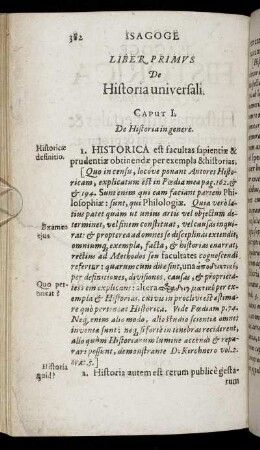 382 ISAGOGE
LIBER PRIMVS
De
Historia universali.
CAPUT I.
De Historia in genere.
Historicæ definitio.
1. HISTORICA est facultas sapientiæ &
prudentiæ obtinendæ per exempla & historias.
[Quo in censu, locóve ponant Autores Histo-
ricam, explicatum est in Pœdia mea pag. 162. &
& 194. Sunt enim qui eam faciant partem Phi-
losophiæ: sunt, qui Philologiæ. Quia verò la-
tius patet quàm ut unius artis vel objectum de-
terminet, vel finem constituat, vel campis inqui-
Examen ejus
rat: & propterea ad omnes se disciplinas extendit,
omniumq, exempla, facta, & historias enarrat,
rectius ad Methodos seu facultates cognoscendi
refertur: quarum cum duæ sint, una
per definitiones, divisiones, causas, & propri-
Quo per- tineat?
tates rem explicant: altera per ex-
empla & Historias, cuivis in proclivi est æstima-
re quò pertineat Historica. Vide Pœdiam p. 74.
Neq, enim alio modo, aliæ scientiæ omnes
inventa sunt: neq, si forte in tenebras reciderent,
alio quàm Historiarum lumine accendi & repa-
rari possunt, demonstrante D. Kerchnero vol. 2.
Historia quid?
2. Historia autem est rerum publicè gesta-
rum